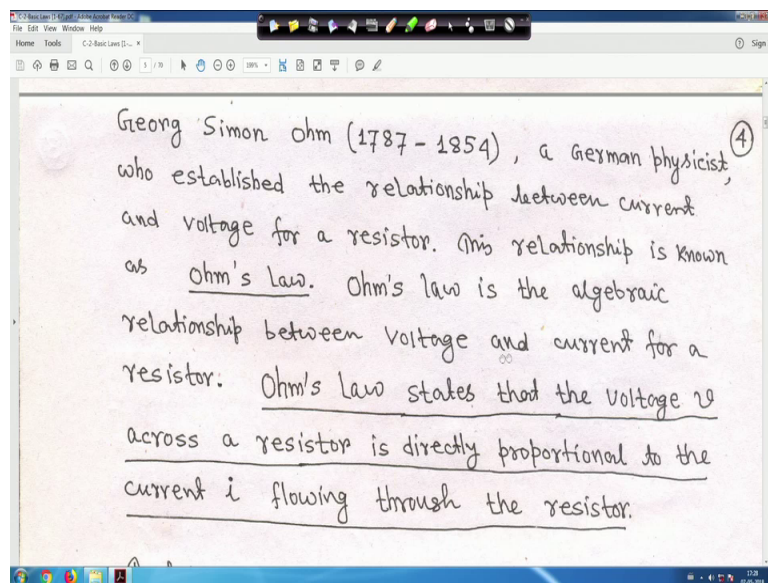 C-2-Basic Laws [1-67].pdf - Adobe Acrobat Reader DC
File Edit View Window Help
Home Tools C-2-Basic Laws [1-... × Sign
5 / 70
Georg Simon Ohm (1787 - 1854), a German physicist, 4
who established the relationship between current
and voltage for a resistor. This relationship is known
as Ohm's Law. Ohm's law is the algebraic
relationship between voltage and current for a
resistor. Ohm's Law states that the voltage v
across a resistor is directly proportional to the
current i flowing through the resistor.
17:28